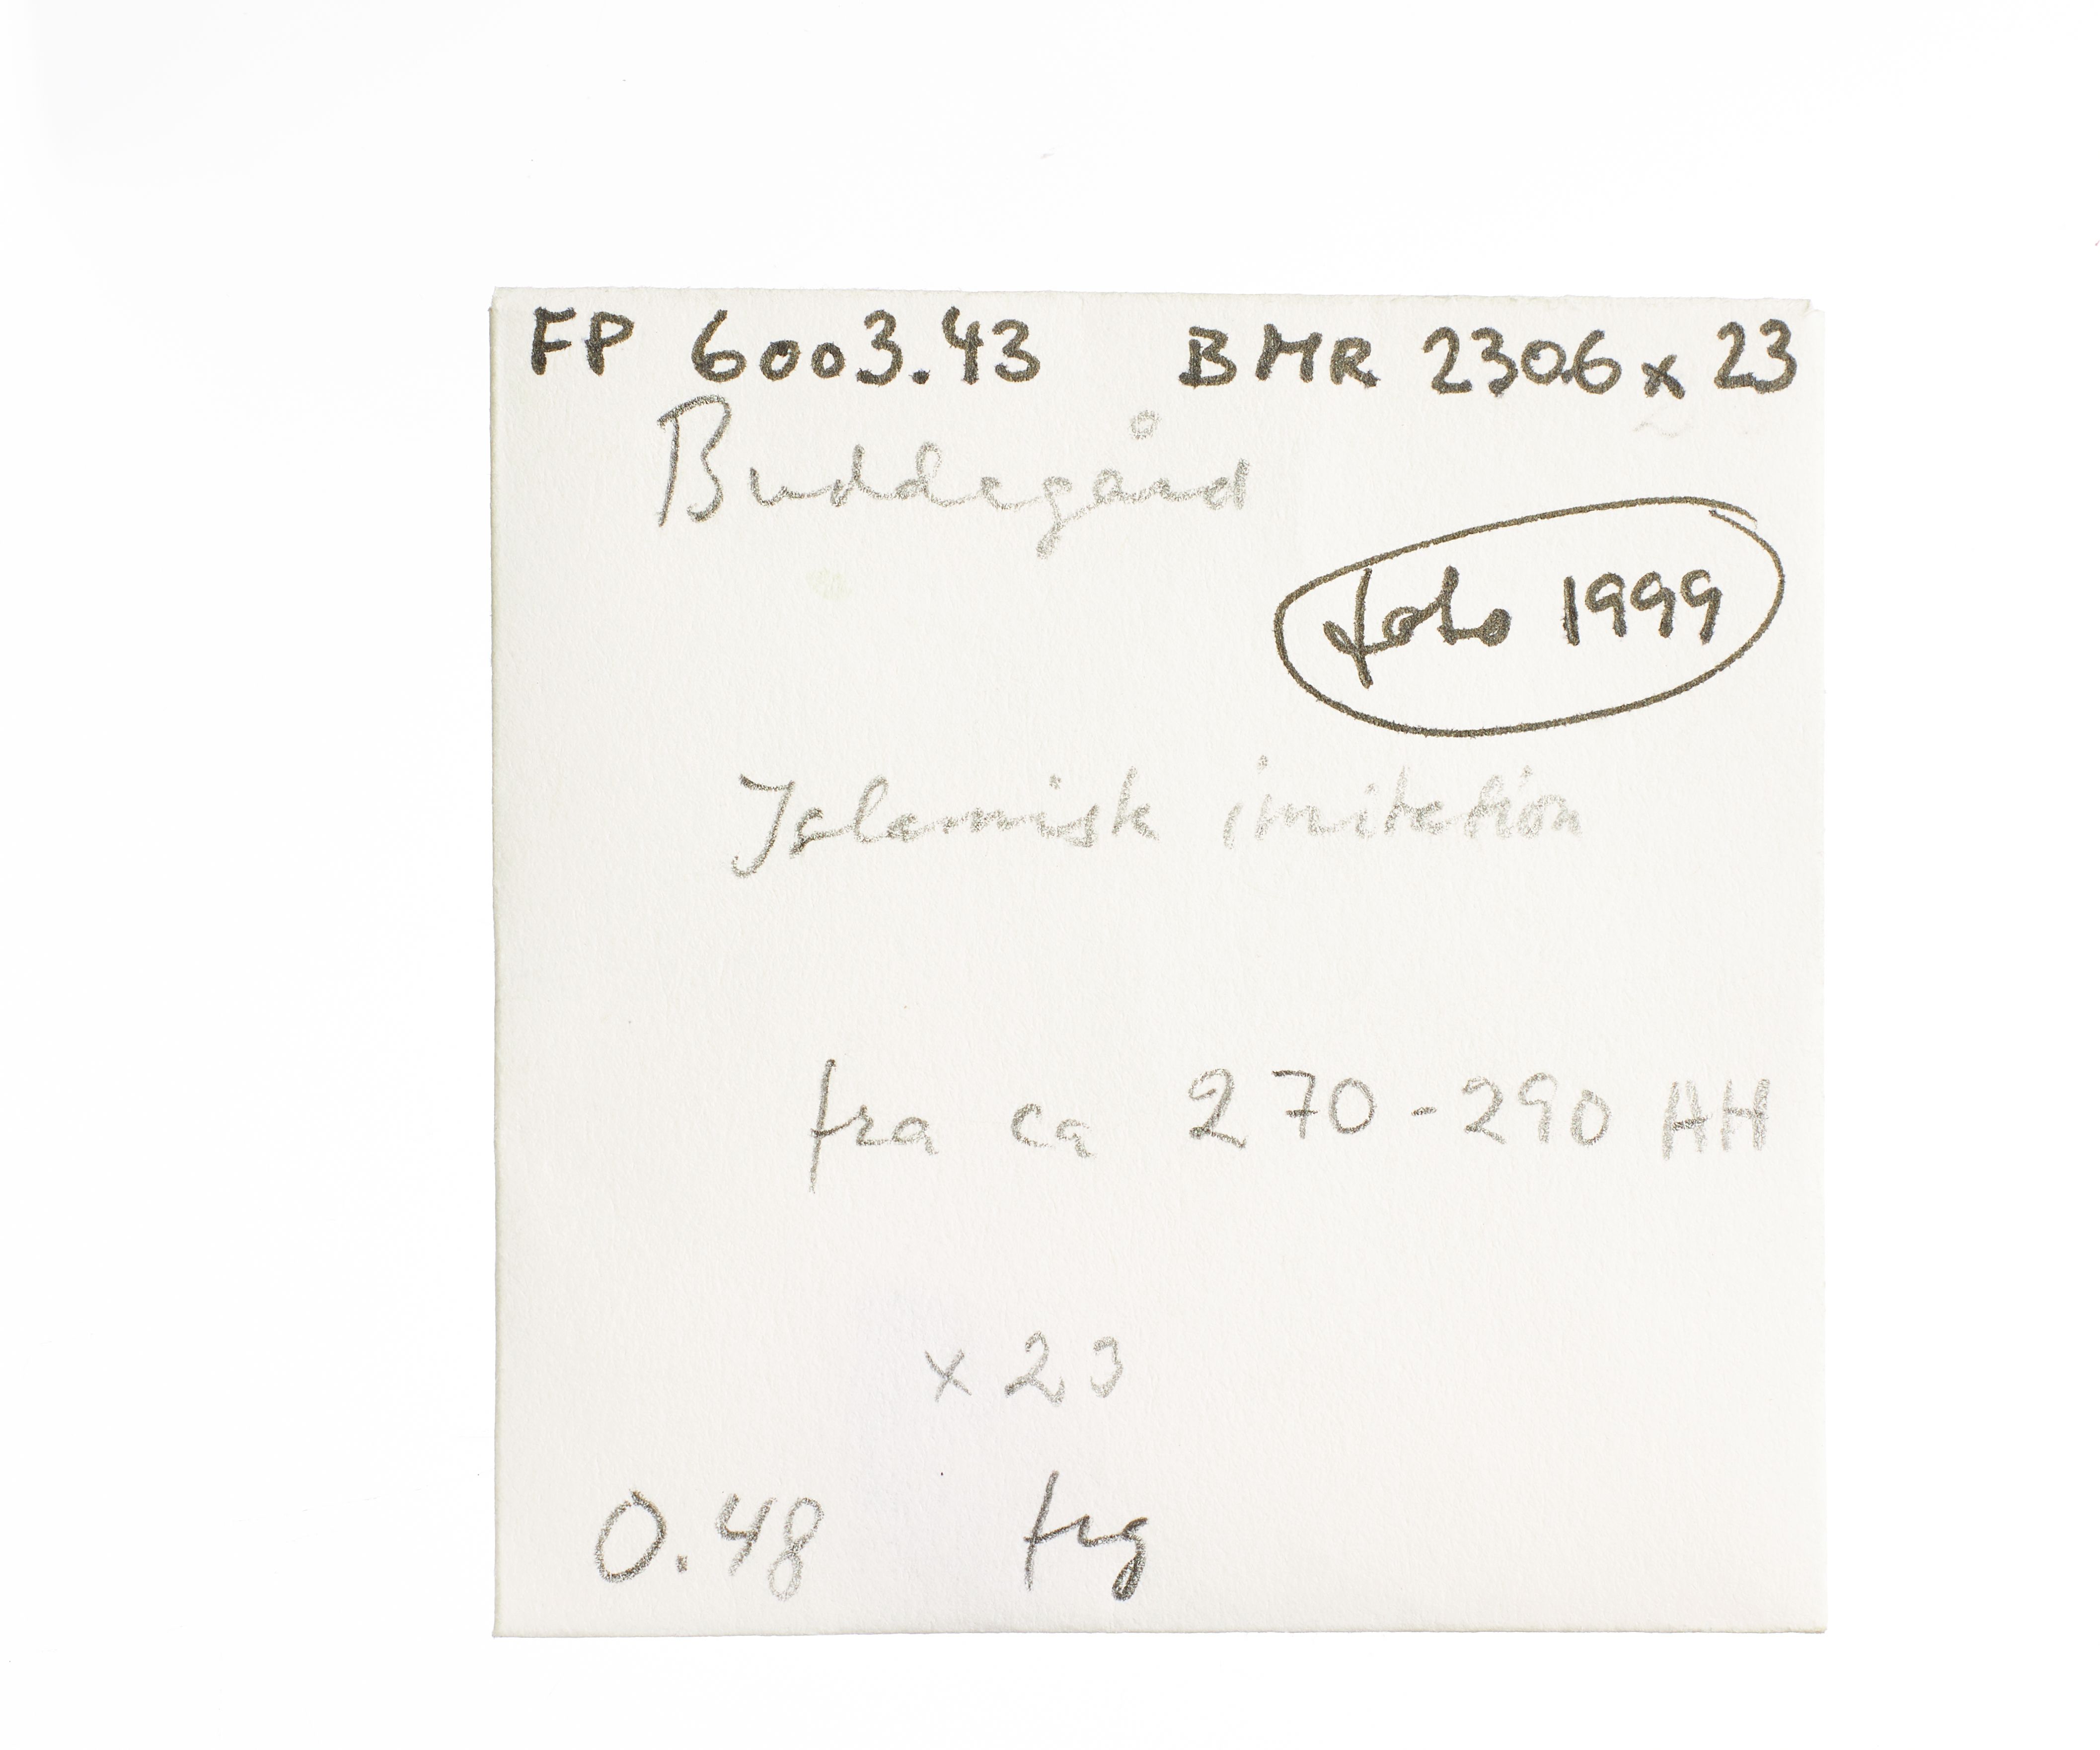 FP 6003.43 BMR 2306 x 23
Buddegård
foto 1999
Islamisk imitation
fra ca 270-290 AH
x 23
0.48 frg